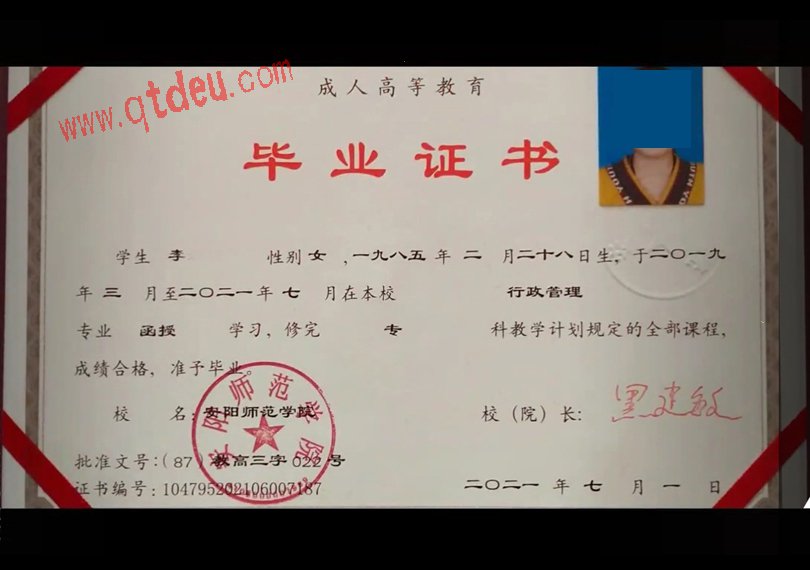 www.qtdeu.com
成人高等教育
毕业证书
学生 李 性别 女 ,一九八五 年 二 月二十八日生, 于二〇一九
年 三 月至二〇二一年 七 月在本校 行政管理
专业 函授 学习, 修完 专 科教学计划规定的全部课程,
成绩合格, 准予毕业。
校 名: 安阳师范学院 校 (院) 长: 黑建敏
安阳师范学院
批准文号: (87) 教高三字 022 号
证书编号: 104795202106007187 二〇二一 年 七 月 一 日